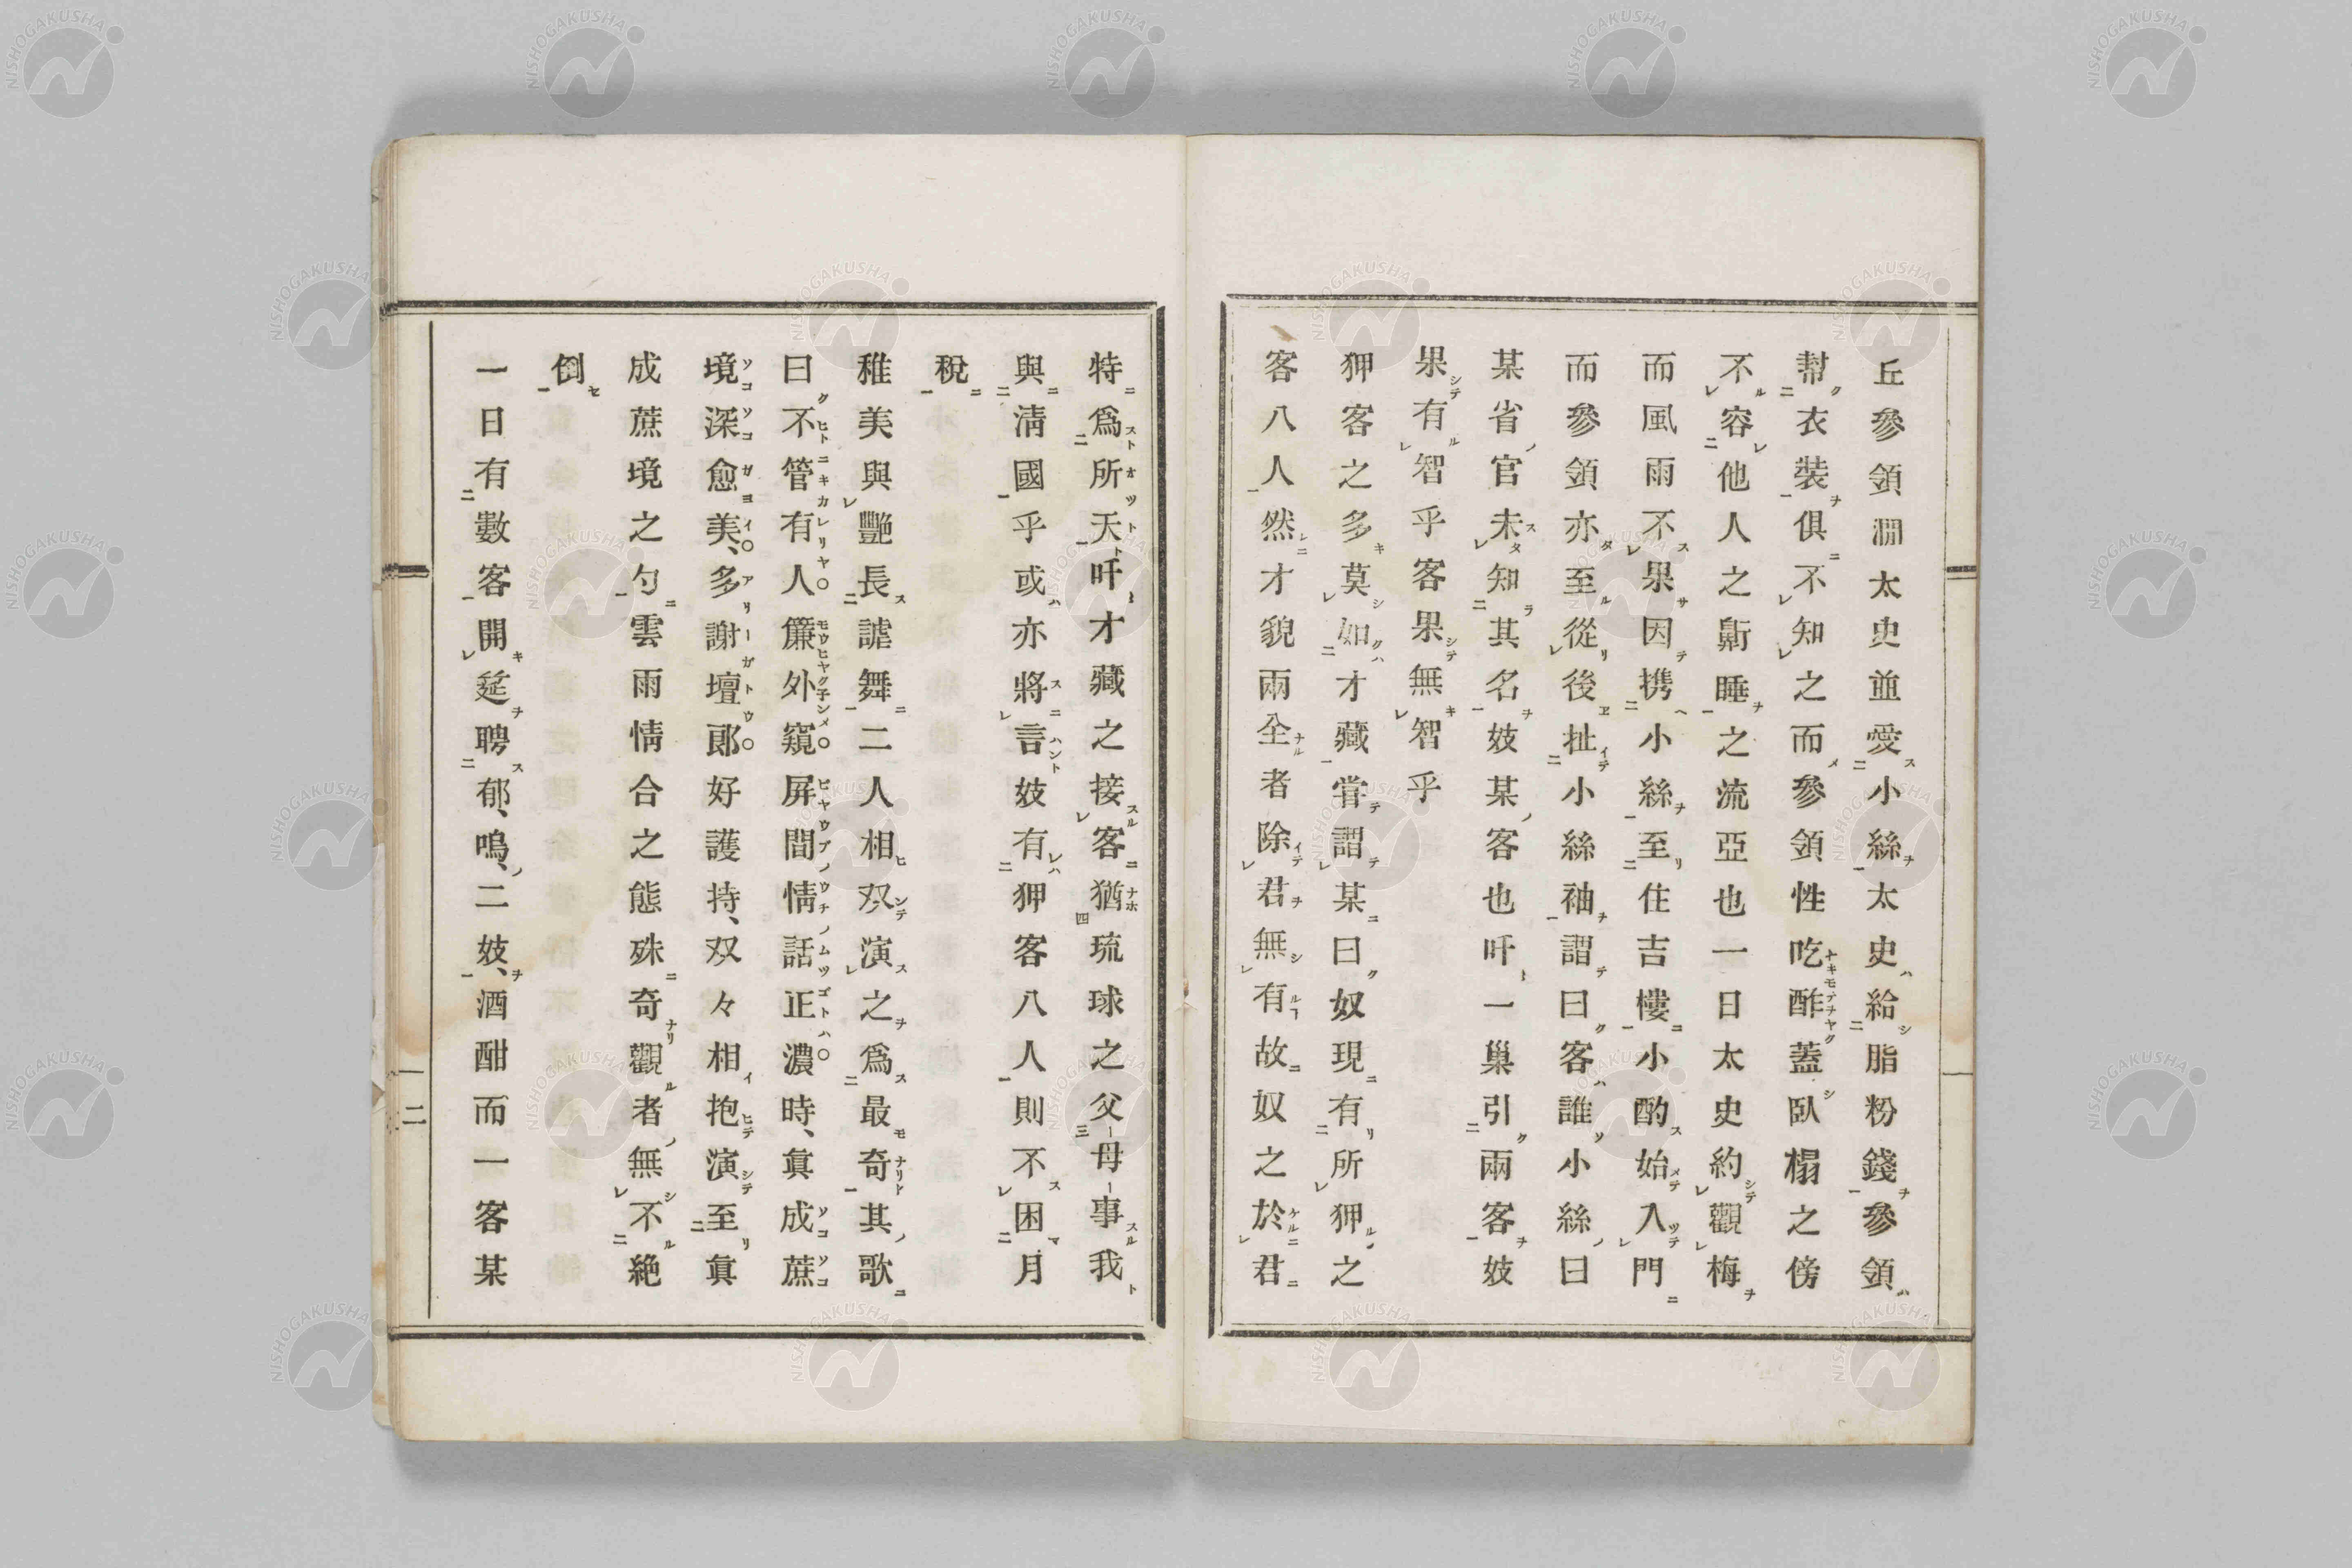 丘參領淵太史並愛小絲太史給脂粉錢參領
幇衣裝俱不知之而參領性吃酢蓋臥榻之傍
不容他人之鼾睡之流亞也一日太史約觀梅
而風雨不果因携小絲至住吉樓小酌始入門
而參領亦至從後扯小絲袖謂曰客誰小絲曰
某省官未知其名妓某客也吁一巢引兩客妓
果有智乎客果無智乎
狎客之多莫如才藏嘗謂某曰奴現有所狎之
客八人然才貌兩全者除君無有故奴之於君
特爲所天吁才藏之接客猶琉球之父母事我
與淸國乎或亦將言妓有狎客八人則不困月
稅
稚美與艷長謔舞二人相双演之爲最奇其歌
曰不管有人簾外窺屏間情話正濃時、眞成蔗
境深愈美、多謝壇郞好護持、双々相抱演至眞
成蔗境之勺雲雨情合之態殊奇觀者無不絶
倒
一日有數客開筵聘郁、鳴、二妓、酒酣而一客某
二
NISHOGAKUSHA